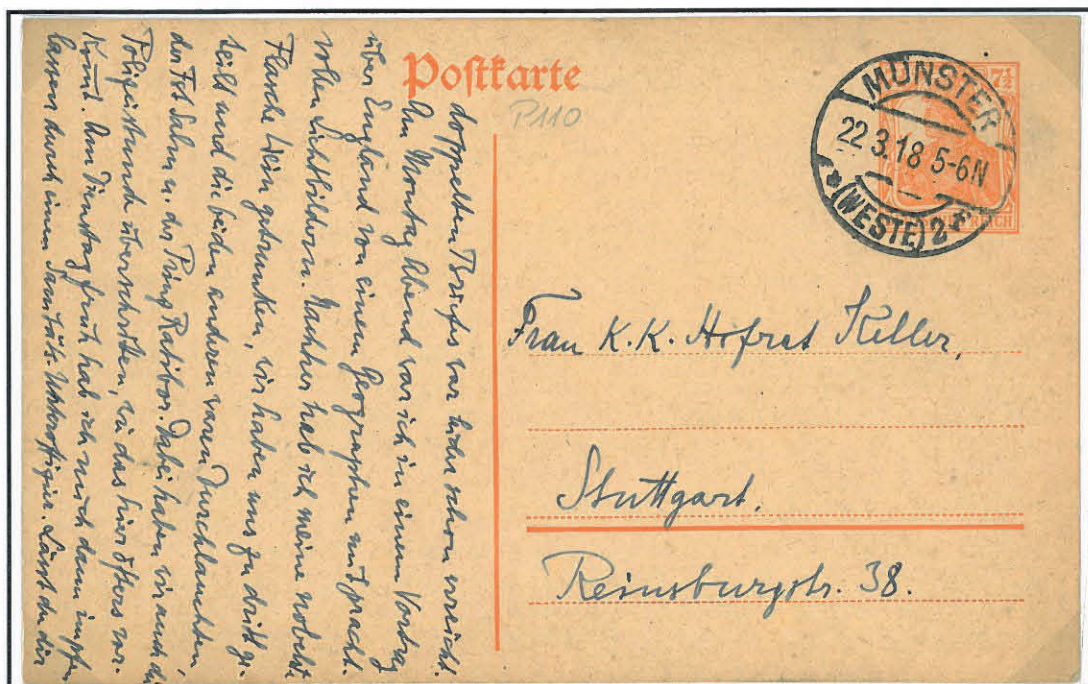 Postkarte
P110
MÜNSTER
22.3.18 5-6N
(WESTF) 2
7½
REICH
Frau K.K. Hofrat Keller,
Stuttgart.
Reinsburgstr. 38.
doppelten Briefes war leider schon erreicht.
Am Montag Abend war ich in einem Vortrag
über England von einem Geographen mit pracht-
vollen Lichtbildern. Nachher hab ich meine
Flasche Wein getrunken, wir haben uns zu dritt ge-
teilt und die beiden anderen waren Durchlauchten,
der Fst Salm u. der Prinz Ratibor. Dabei haben wir auch die
Polizeistunde überschritten, wie das hier öfters vor-
kommt. Am Dienstag früh hab ich mich dann impfen
lassen durch einen Sanitäts-Unteroffizier. Lässt du dir